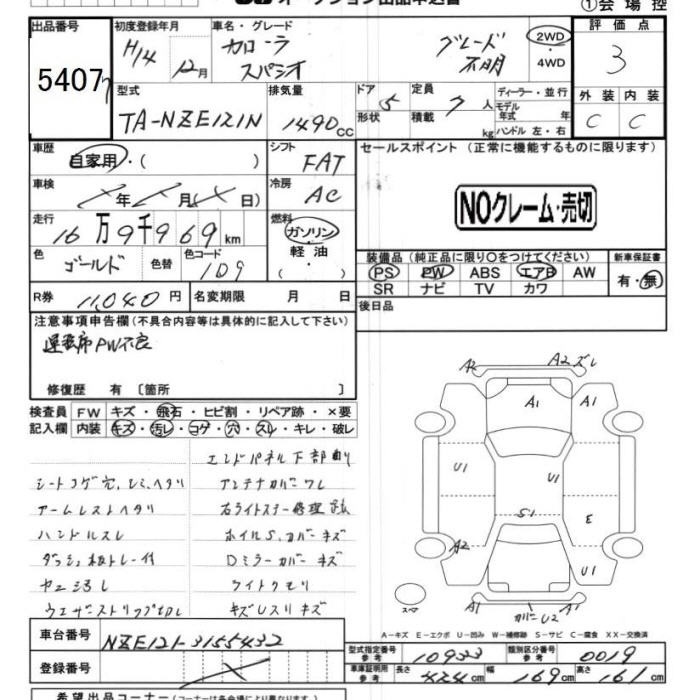 ①会場控
出品番号
5407
初度登録年月
H14 12月
車名・グレード
カローラ
スパシオ
グレード
不明
2WD
・
4WD
評価点
3
外装 内装
C C
型式
TA-NZE121N
排気量
1490cc
ドア 5
形状
定員 7人
積載 kg
ディーラー・並行
モデル年式 年式
ハンドル 左・右
車歴
自家用・( )
シフト
FAT
セールスポイント (正常に機能するものに限ります)
NOクレーム・売切
車検
年 月 日)
冷房
AC
走行
16万9千969km
燃料
ガソリン・
軽油
( ・ )
色
ゴールド
色替
色コード
1D9
装備品(純正品に限り○をつけてください)
PS PW ABS エアB AW
SR ナビ TV カワ
新車保証書
有・無
R券 11,040円
名変期限 月 日
後日品
注意事項申告欄(不具合内容等は具体的に記入して下さい)
運転席PW不良
修復歴 有 〔箇所 〕
検査員
記入欄
FW キズ・飛石・ヒビ割・リペア跡・×要
内装 キズ・汚レ・コゲ・穴・スレ・キレ・破レ
エンドパネル下部曲り
シートコゲ穴、シミ、ヘタリ
アンテナカバーワレ
アームレストヘタリ
右ライトステー修理跡
ハンドルスレ
ホイルS、カバーキズ
ダッシュ板トレー付
Dミラーカバーキズ
ヤニ汚レ
ライトクモリ
ウエザーストリップ切レ
キズUスリキズ
A2 A2ズレ
A1 A1
U1 U1
S1 E
A2 U1
A1 A1
カバーU2
スペア
A-キズ E-エクボ U-凹み W-補修跡 S-サビ C-腐食 XX-交換済
車台番号
NZE121-3155432
登録番号
型式指定番号
参考
10933
類別区分番号
参考
0019
車庫証明用
参考
長さ 424cm 幅 169cm 高さ 161cm
希望出品コーナー